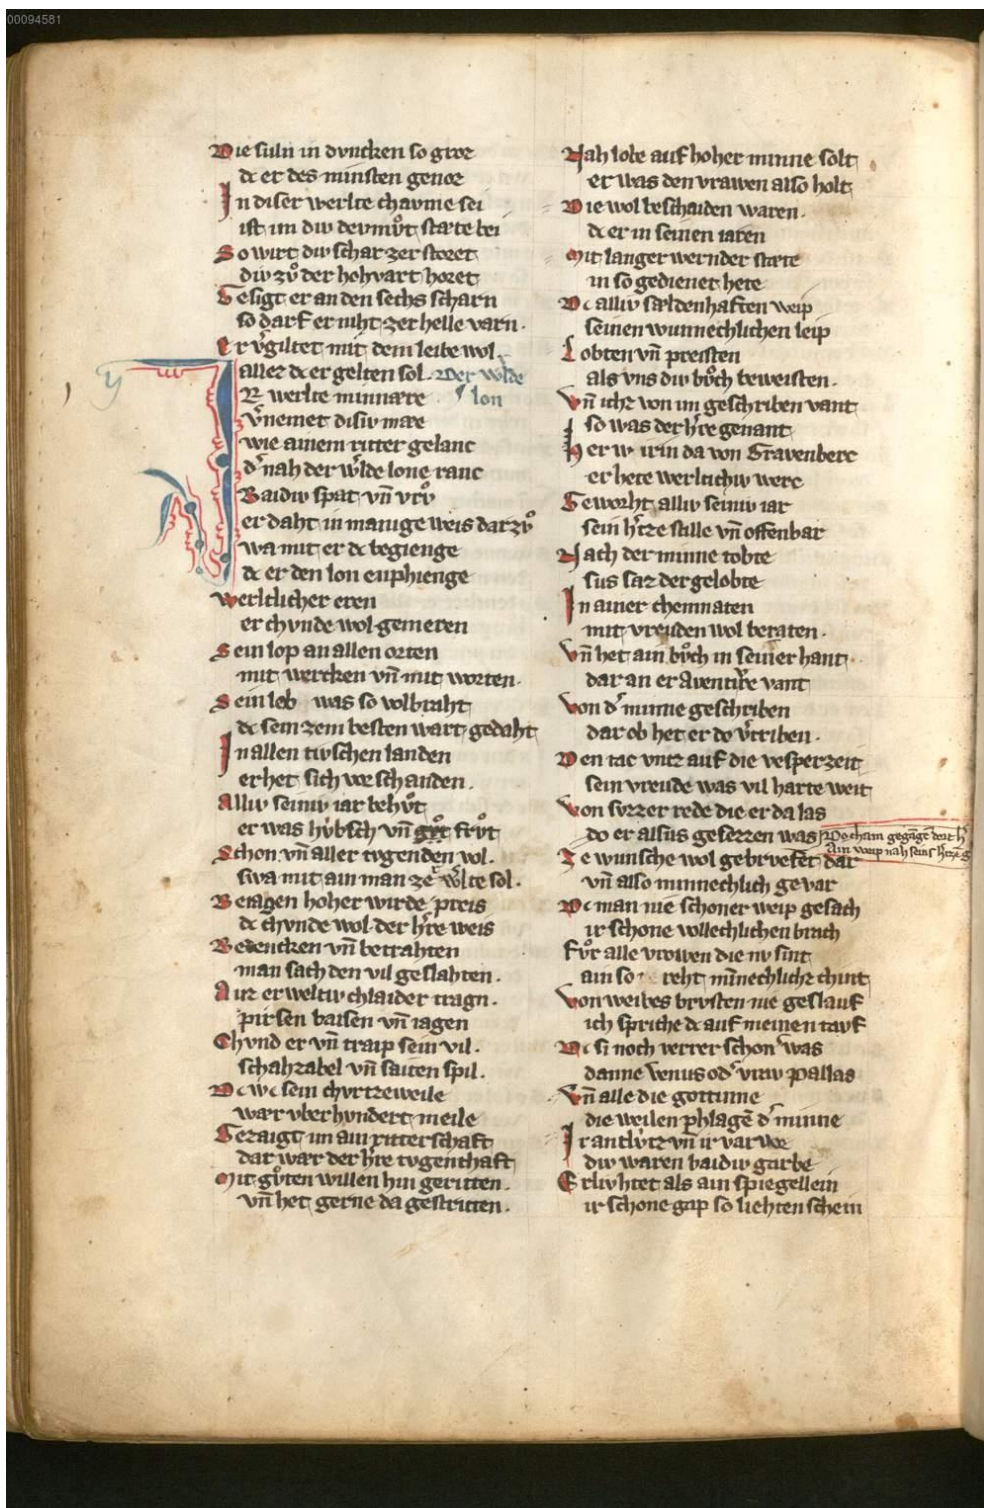 00094581
Die suln in dvncken so groz
dc er des minsten genoz
In diser werlte chavme sei
ist im div devmvͦt stæte bei
So wirt div schar zerstoret
div zvͦ der hohvart horet
Gesigt er an den sechs scharn
so darf er niht zer helle varn.
Er vͤgiltet mit dem leibe wol
allez dc er gelten sol. Der wͤlde
lon
IR werlte minnære
vͤnemet disiv mære
wie ainem ritter gelanc
dͤ nah der wͤlde lone ranc
Baidiv spat vn̄ vrvͦ
er daht in manige weis darzvͦ
wa mit er dc begienge
dc er den lon enphienge
werltlicher eren
er chvnde wol gemeren
Sein lop an allen orten
mit wercken vn̄ mit worten.
Sein leb was so volbraht
dc sein zem besten wart gedaht
In allen tivschen landen
er het sich vor schanden.
Alliv seiniv iar behvͦt
er was hvbsch vn̄ frvͦt
Schon vn̄ aller tvgenden vol.
swa mit ain man ze wͤlte sol.
Beiagen hoher wirde preis
dc chvnde wol der hͤre weis
Bedencken vn̄ betrahten
man sach den vil geslahten.
Auz erweltiv chlaider tragn.
pirsen baisen vn̄ iagen
Chvnd er vn̄ traip sein vil.
schahzabel vn̄ saiten spil.
Dc wc sein chvrtzeweile
wær vber hvndert meile
Gezaigt im ain ritterschaft
dar wær der hͤre tvgenthaft
Mit gvͦten willen hin geritten.
vn̄ het gerne da gestritten.
Nah lobe auf hoher minne solt
er was den vrawen also holt
Die wol beschaiden waren.
dc er in seinen iaren
Mit langer wernder stæte
in so gedienet hete
Dc alliv sældenhaften weip
seinen wunnechlichen leip
Lobten vn̄ preisten
als vns div bvͦch beweisten.
Vn̄ ichz von im geschriben vant
so was der hͤre genant
Her wirin da von Gravenberc
er hete werltlichiv werc
Geworht alliv seiniv iar
sein hͤtze stille vn̄ offenbar
Nach der minne tobte
sus saz der gelobte
In ainer chemnaten
mit vreuden wol beraten.
Vn̄ het ain bvͦch in seiner hant
dar an er Aventivͤre vant
Von dͤ minne geschriben
dar ob het er do vͤtriben.
Den tac vntz auf die vesperzeit
sein vreude was vil harte weit
Von svzzer rede die er da las
do er alsus gesezzen was Do cham gegāgē dort hͤ
Ain weip nah seins hͤtzē g
Ze wunsche wol gebrvefet dar
vn̄ also minnechlich gevar
Dc man nie schoner weip gesach
ir schone vollechlichen brach
Fvͦr alle vrowen die nv sint
ain so reht mīnechlichz chint
Von weibes brvsten nie geslauf
ich spriche dc auf meinen tavf
Dc si noch verrer schon was
danne Venus odͤ vraw Pallas
Vn̄ alle die gottinne
die weilen phlagē dͤ minne
Ir antlvtz vn̄ ir varwe
div waren baidiv garbe
Erlivhtet als ain spiegellein
ir schone gap so liehten schein